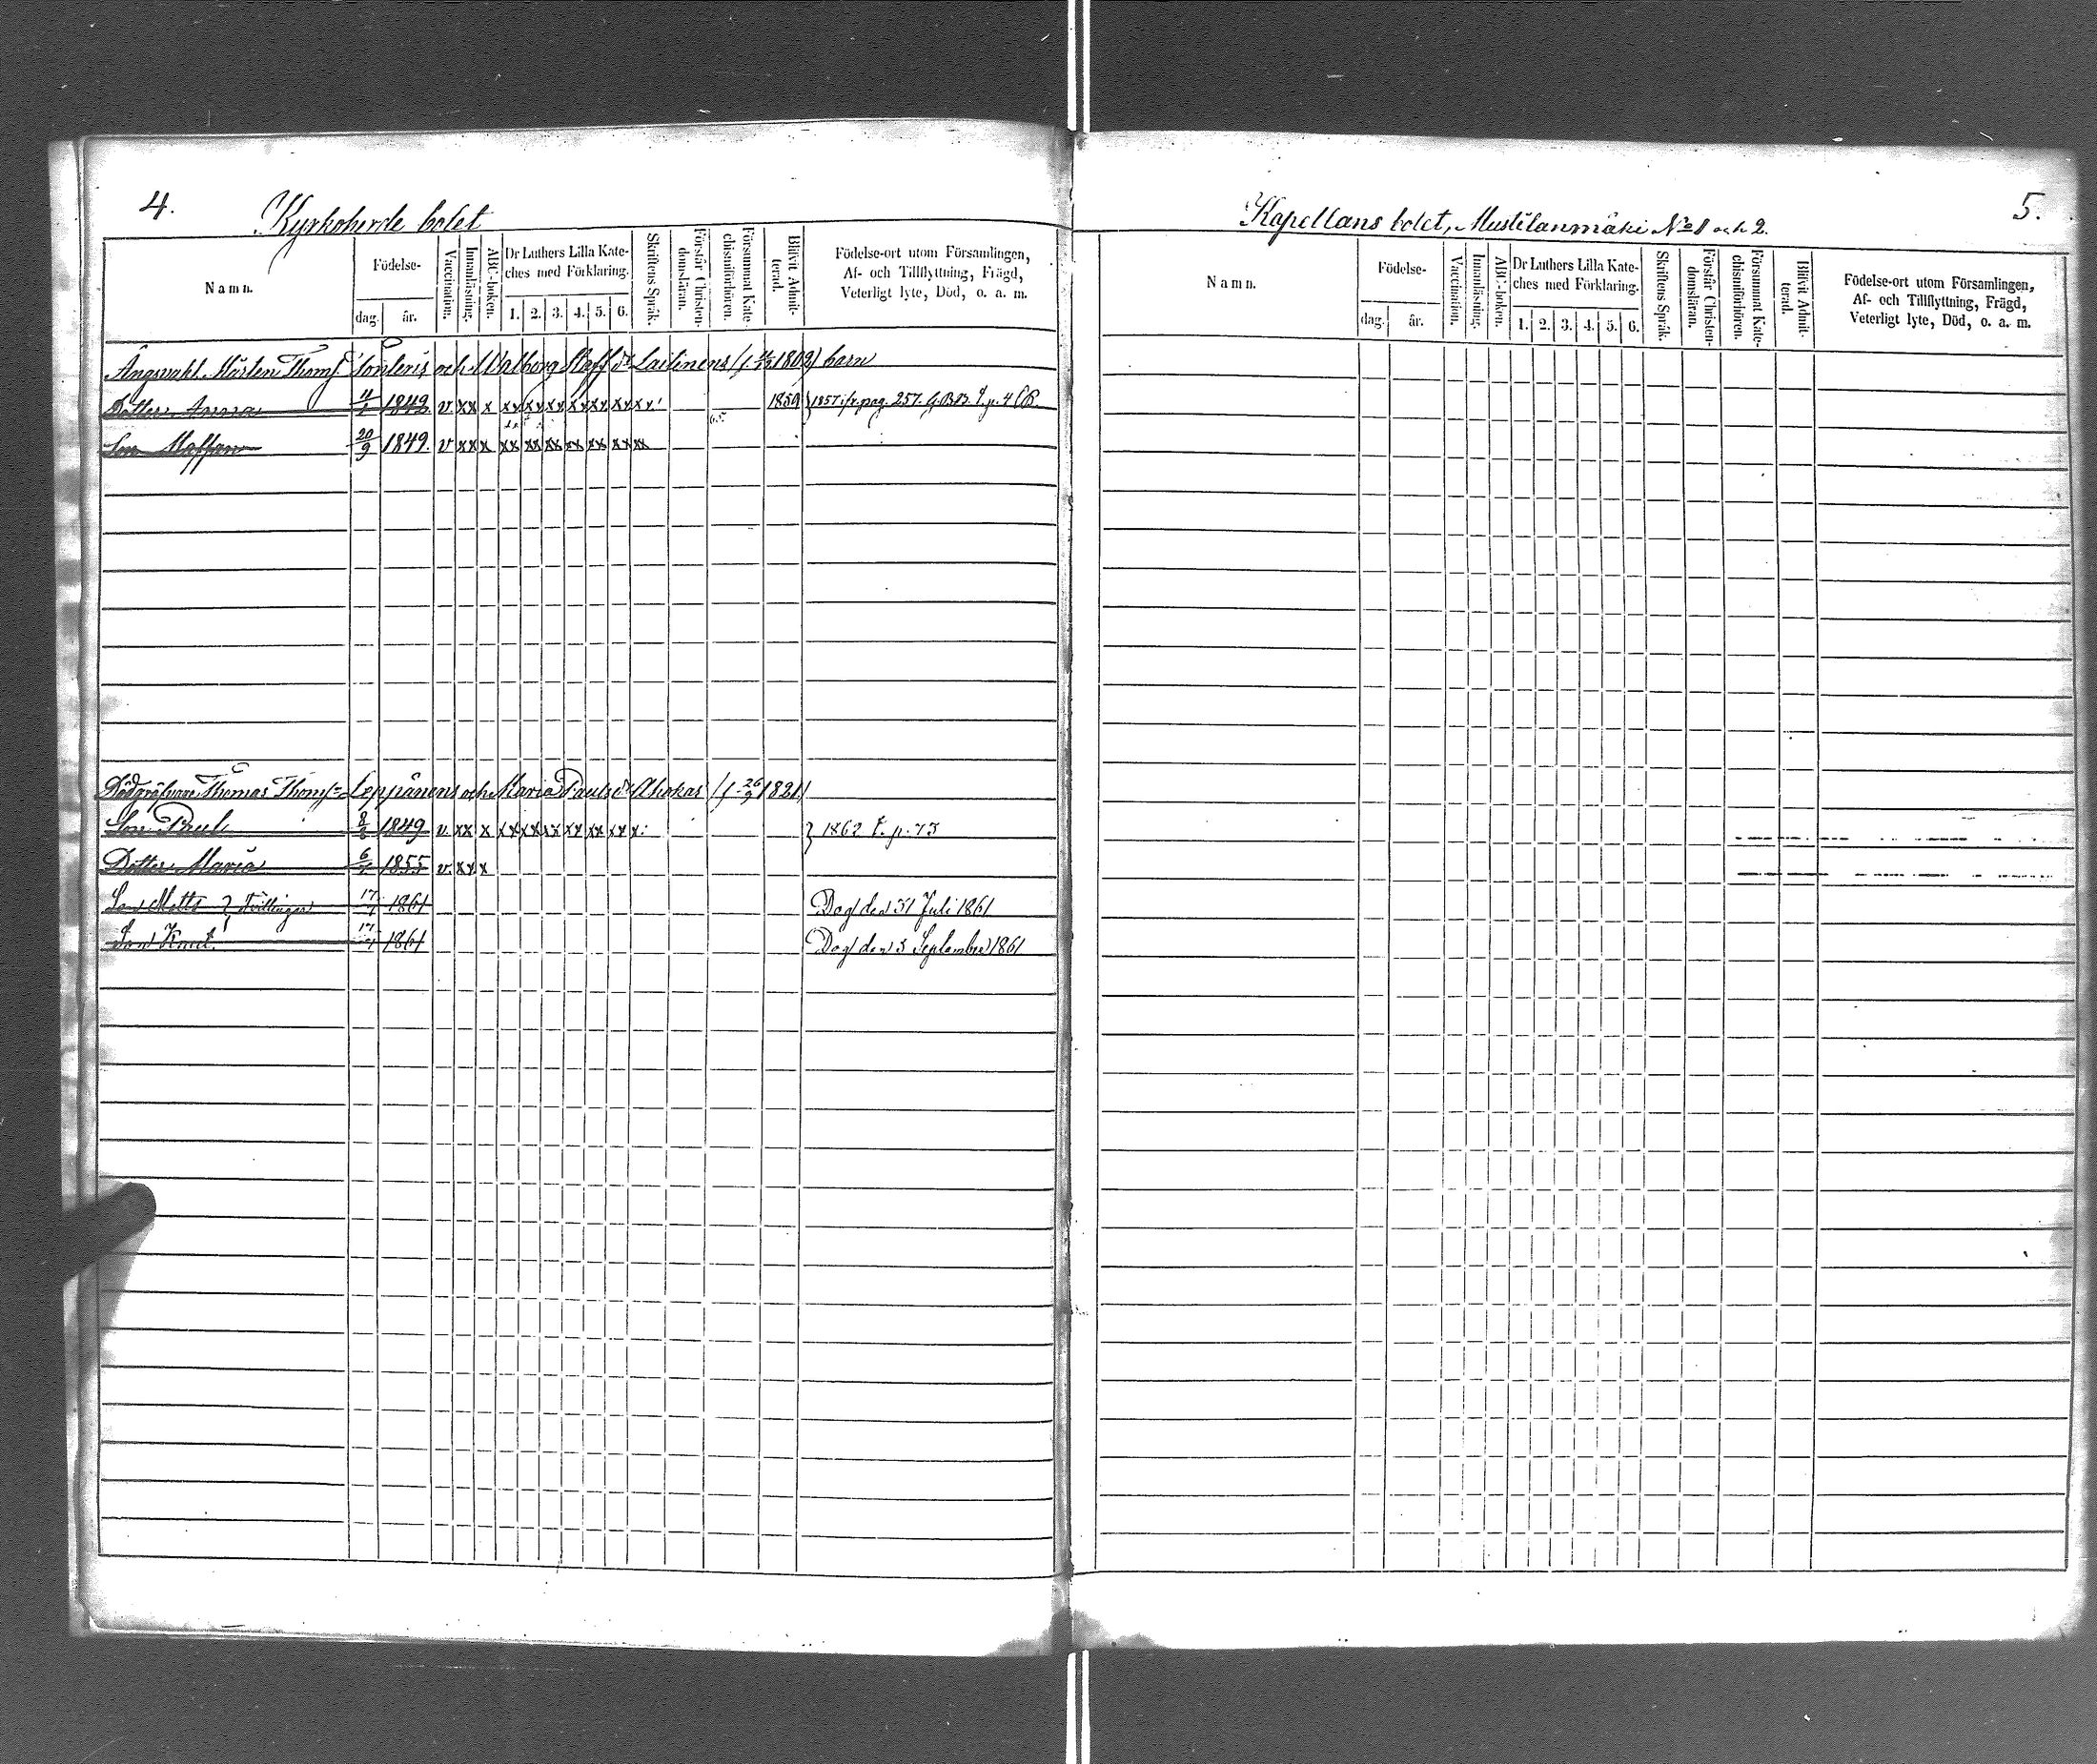 4.
Kyrkoherde bolet
Namn.
Födelse-
dag.
år.
Vaccination.
Innanläsning.
ABC-boken.
Dr Luthers Lilla Kate-
ches med Förklaring.
1. 2. 3. 4. 5. 6.
Skriftens Språk.
Förstår Christen-
domsläran.
Försummat Kate-
chismiförhören.
Blifvit Admit-
terad.
Födelse-ort utom Församlingen,
Af- och Tillflyttning, Frägd,
Veterligt lyte, Död, o. a. m.
Ängsvakt. Mårten Thoms Sonleris och Walborg Staff dr Laitinens 1802) barn
Dotter Anna 1842 v xx x xx xx xx xx xx xx x 1859 } 1857 pag. 257. p. 4
Son Staffan 20/9 1849. v xx x xx xx xx xx xx xx xx
Thomas Thoms= Leppänens och Maria Pauls dr Ahokas (f. 26/9 1821)
Son Paul 1849 v. xx x xx xx xx xx xx xx x } 1862 p. 73
Dotter Maria 1855 v. xx x
Son Matts } Tvillingar 1861 Dog den 31 Juli 1861
Son Knut. 1861 Dog den 3 September 1861
5.
Kapellans bolet, Mustilanmäki No 1 och 2.
Namn.
Födelse-
dag.
år.
Vaccination.
Innanläsning.
ABC-boken.
Dr Luthers Lilla Kate-
ches med Förklaring.
1. 2. 3. 4. 5. 6.
Skriftens Språk.
Förstår Christen-
domsläran.
Försummat Kate-
chismiförhören.
Blifvit Admit-
terad.
Födelse-ort utom Församlingen,
Af- och Tillflyttning, Frägd,
Veterligt lyte, Död, o. a. m.